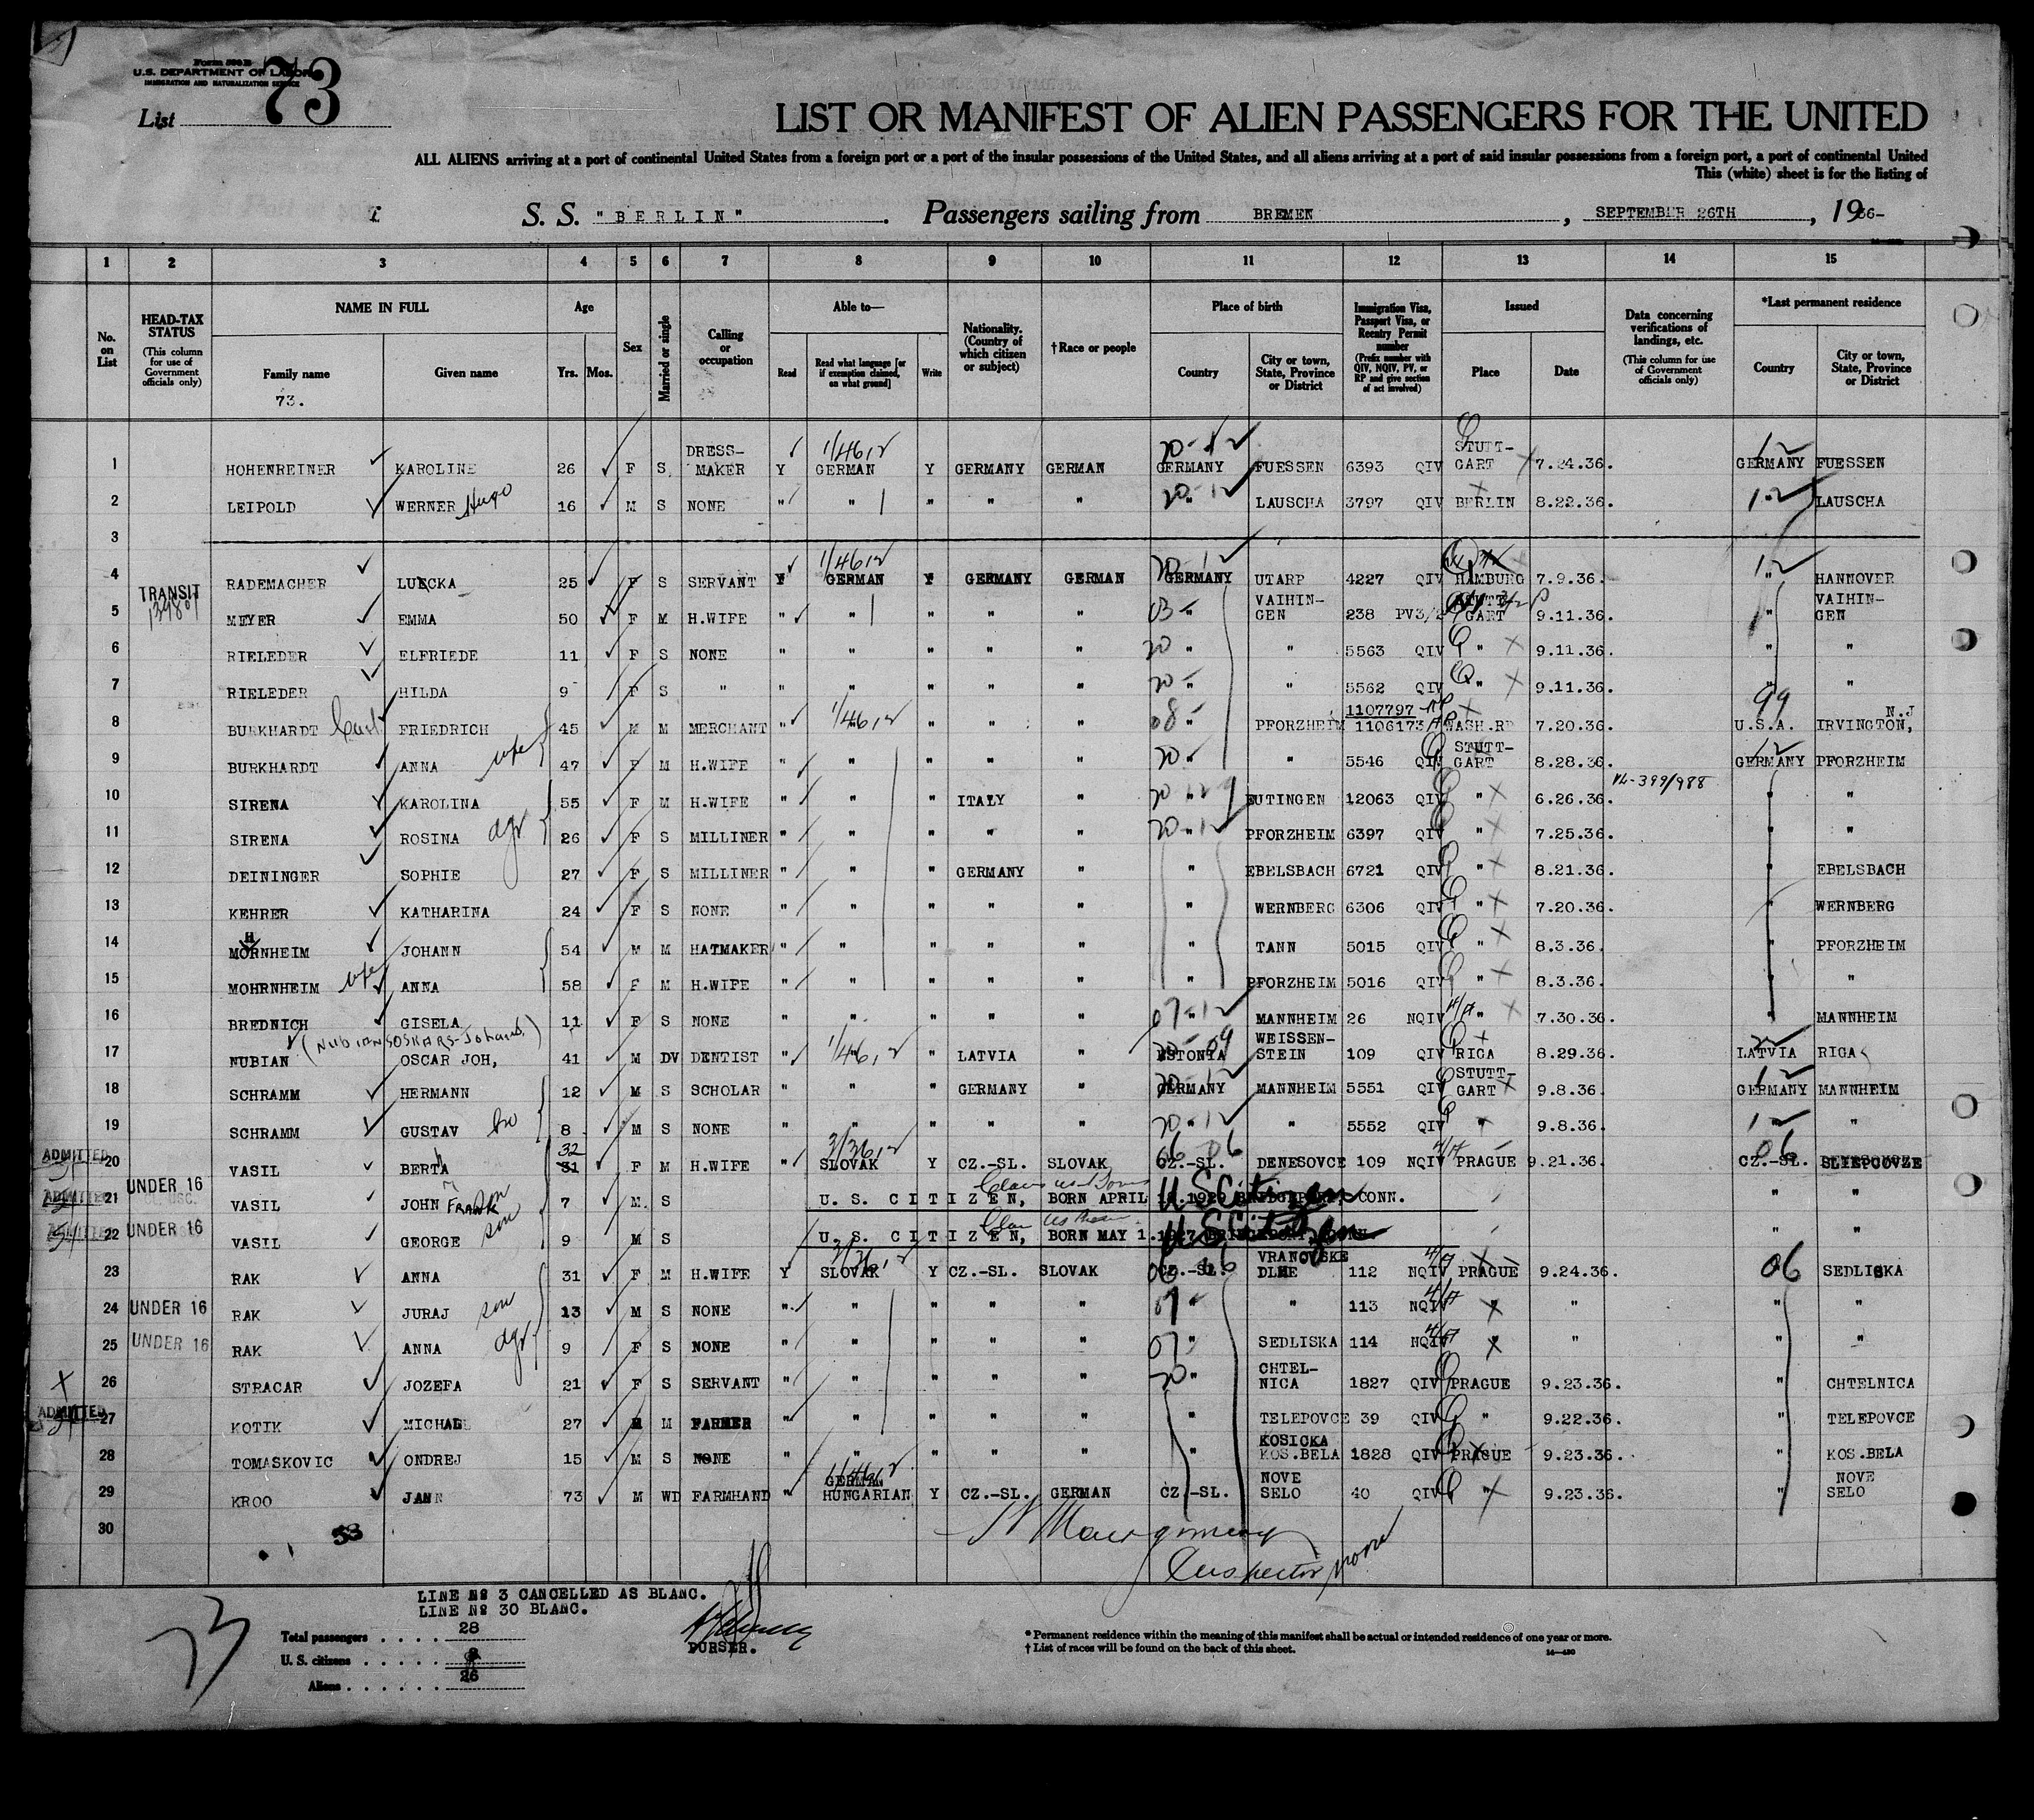 Form 500 B
U.S. DEPARTMENT OF LABOR
IMMIGRATION AND NATURALIZATION SERVICE
List 73
LIST OR MANIFEST OF ALIEN PASSENGERS FOR THE UNITED
ALL ALIENS arriving at a port of continental United States from a foreign port or a port of the insular possessions of the United States, and all aliens arriving at a port of said insular possessions from a foreign port, a port of continental United
This (white) sheet is for the listing of
S. S. "BERLIN". Passengers sailing from BREMEN, SEPTEMBER 26TH, 1936-
1 2 3 4 5 6 7 8 9 10 11 12 13 14 15
No. on List
HEAD-TAX STATUS (This column for use of Government officials only)
NAME IN FULL
Family name Given name
73.
Age Yrs. Mos.
Sex
Married or single
Calling or occupation
Able to—
Read Read what language [or if exemption claimed, on what ground] Write
Nationality. (Country of which citizen or subject)
†Race or people
Place of birth
Country City or town, State, Province or District
Immigration Visa, Passport Visa, or Reentry Permit number (Prefix number with QIV, NQIV, PV, or RP and give section of act involved)
Issued
Place Date
Data concerning verifications of landings, etc. (This column for use of Government officials only)
*Last permanent residence
Country City or town, State, Province or District
1 HOHENREINER KAROLINE 26 F S DRESS-MAKER Y GERMAN Y GERMANY GERMAN GERMANY FUESSEN 6393 QIV STUTT-GART 7.24.36. GERMANY FUESSEN
2 LEIPOLD WERNER Hugo 16 M S NONE " " " " " " LAUSCHA 3797 QIV BERLIN 8.22.36. " LAUSCHA
3
4 RADEMACHER LUECKA 25 F S SERVANT Y GERMAN Y GERMANY GERMAN GERMANY UTARP 4227 QIV HAMBURG 7.9.36. " HANNOVER
5 TRANSIT MEYER EMMA 50 F M H.WIFE " " " " " " VAIHIN-GEN 238 PV3/2 STUTT-GART 9.11.36. " VAIHIN-GEN
6 RIELEDER ELFRIEDE 11 F S NONE " " " " " " " 5563 QIV " 9.11.36. " "
7 RIELEDER HILDA 9 F S " " " " " " " " 5562 QIV " 9.11.36. " "
8 BURKHARDT Carl FRIEDRICH 45 M M MERCHANT " " " " " " PFORZHEIM 1107797 RP 1106173 RP WASH.RP 7.20.36. U.S.A. IRVINGTON, N.J
9 BURKHARDT ANNA wife 47 F M H.WIFE " " " " " " " 5546 QIV STUTT-GART 8.28.36. GERMANY PFORZHEIM
10 SIRENA KAROLINA 55 F M H.WIFE " " " ITALY " " EUTINGEN 12063 QIV " 6.26.36. VL-399/988 " "
11 SIRENA ROSINA dgr 26 F S MILLINER " " " " " " PFORZHEIM 6397 QIV " 7.25.36. " "
12 DEININGER SOPHIE 27 F S MILLINER " " " GERMANY " " EBELSBACH 6721 QIV " 8.21.36. " EBELSBACH
13 KEHRER KATHARINA 24 F S NONE " " " " " " WERNBERG 6306 QIV " 7.20.36. " WERNBERG
14 MOHRNHEIM JOHANN 54 M M HATMAKER " " " " " " TANN 5015 QIV " 8.3.36. " PFORZHEIM
15 MOHRNHEIM wife ANNA 58 F M H.WIFE " " " " " " PFORZHEIM 5016 QIV " 8.3.36. " "
16 BREDNICH GISELA 11 F S NONE " " " " " " MANNHEIM 26 NQIV " 7.30.36. " MANNHEIM
(NUBIANS OSKARS-Johans.)
17 NUBIAN OSCAR JOH, 41 M DV DENTIST " " " LATVIA " ESTONIA WEISSEN-STEIN 109 QIV RIGA 8.29.36. LATVIA RIGA
18 SCHRAMM HERMANN 12 M S SCHOLAR " " " GERMANY " GERMANY MANNHEIM 5551 QIV STUTT-GART 9.8.36. GERMANY MANNHEIM
19 SCHRAMM GUSTAV bro 8 M S NONE " " " " " " " 5552 QIV " 9.8.36. " "
ADMITTED 20 VASIL BERTHA 32 31 F M H.WIFE " SLOVAK Y CZ.-SL. SLOVAK CZ.-SL. DENESOVCE 109 NQIV PRAGUE 9.21.36. CZ.-SL. SLIEPCOVZE
ADMITTED 21 UNDER 16 VASIL JOHN FRANK son 7 M S U. S. CITIZEN, BORN APRIL CONN. US Citizen " "
ADMITTED 22 UNDER 16 VASIL GEORGE son 9 M S U. S. CITIZEN, BORN MAY 1.1927 US Citizen " "
23 RAK ANNA 31 F M H.WIFE Y SLOVAK Y CZ.-SL. SLOVAK CZ.-SL. VRANOVSKE DLHE 112 NQIV PRAGUE 9.24.36. 06 SEDLISKA
24 UNDER 16 RAK JURAJ son 13 M S NONE " " " " " " " 113 NQIV " " " "
25 UNDER 16 RAK ANNA dgr 9 F S NONE " " " " " " SEDLISKA 114 NQIV " " " "
26 STRACAR JOZEFA 21 F S SERVANT " " " " " " CHTEL-NICA 1827 QIV PRAGUE 9.23.36. " CHTELNICA
ADMITTED 27 KOTIK MICHAL 27 M M FARMER " " " " " " TELEPOVCE 39 QIV " 9.22.36. " TELEPOVCE
28 TOMASKOVIC ONDREJ 15 M S NONE " " " " " " KOSICKA KOS.BELA 1828 QIV PRAGUE 9.23.36. " KOS.BELA
29 KROO JANN 73 M WD FARMHAND " GERMAN HUNGARIAN Y CZ.-SL. GERMAN CZ.-SL. NOVE SELO 40 QIV " 9.23.36. " NOVE SELO
30
53
Montgomery
Inspector
LINE No 3 CANCELLED AS BLANC.
LINE No 30 BLANC.
Total passengers . . . . 28
U. S. citizens . . . . . 2
Aliens . . . . . . 26
PURSER.
* Permanent residence within the meaning of this manifest shall be actual or intended residence of one year or more.
† List of races will be found on the back of this sheet.